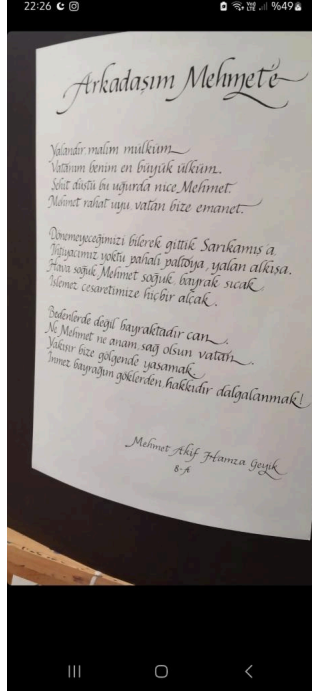 22:26
Vo) LTE %49
Arkadaşım Mehmet'e
Yalandır malım mülküm
Vatanım benim en büyük ülküm.
Şehit düştü bu uğurda nice Mehmet.
Mehmet rahat uyu, vatan bize emanet.
Dönemeyeceğimizi bilerek gittik Sarıkamış'a,
İhtiyacımız yoktu pahalı paltoya, yalan alkışa.
Hava soğuk, Mehmet soğuk, bayrak sıcak
İşlemez cesaretimize hiçbir alçak.
Bedenlerde değil bayraktadır can.
Ne Mehmet ne anam, sağ olsun vatan.
Yakışır bize gölgende yaşamak
İnmez bayrağın göklerden, hakkıdır dalgalanmak!
Mehmet Akif Hamza Geyik
8-A